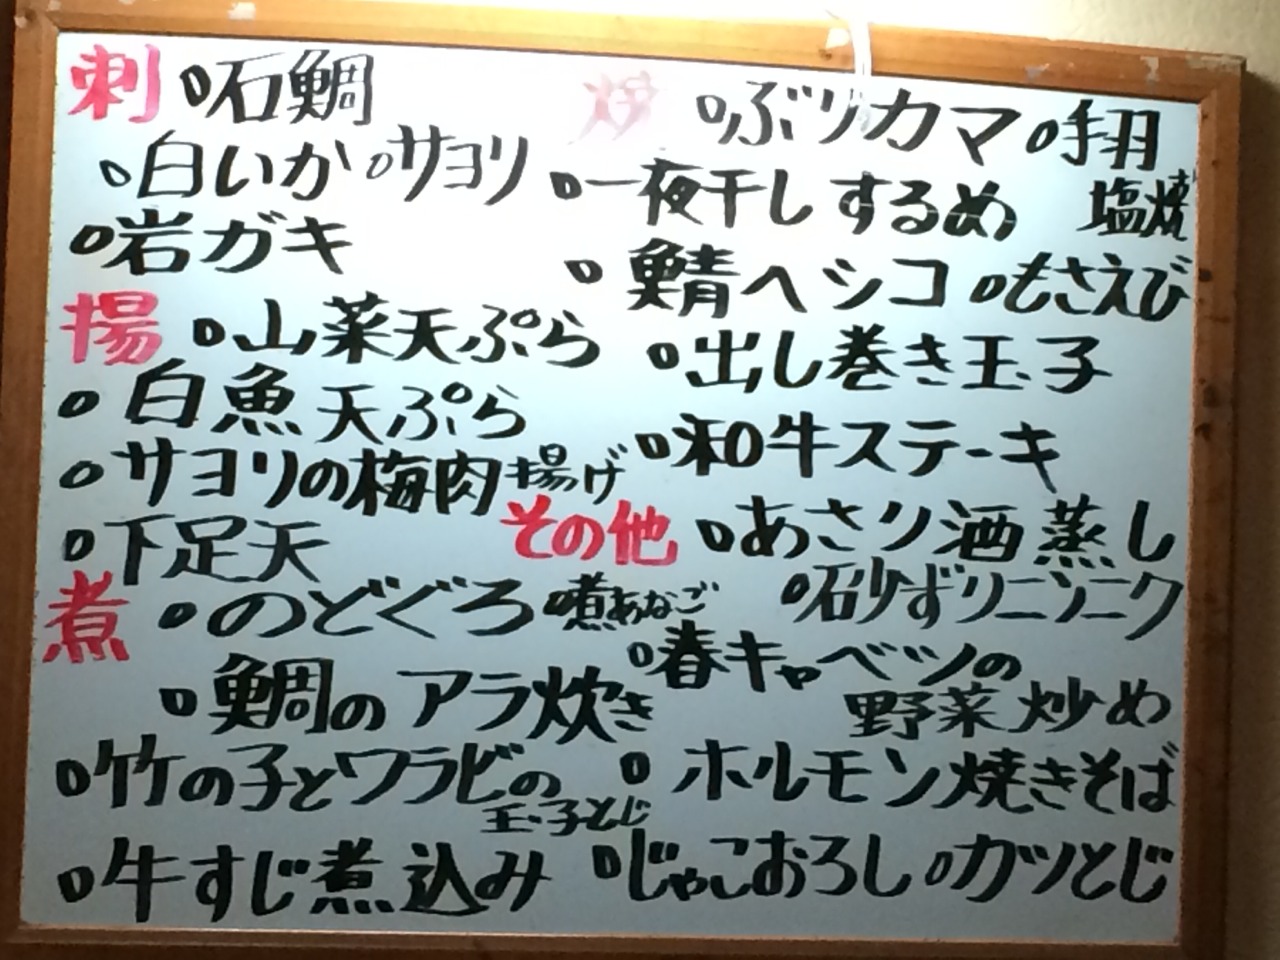 刺 石鯛
白いか サヨリ
岩ガキ
揚 山菜天ぷら
白魚天ぷら
サヨリの梅肉揚げ
下足天
煮 のどぐろ 煮あなご
鯛のアラ炊き
竹の子とワラビの
玉子とじ
牛すじ煮込み
焼 ぶりカマ 手羽
塩焼
一夜干しするめ
鯖ヘシコ もさえび
出し巻き玉子
和牛ステーキ
その他 あさり酒蒸し
砂ずりニンニク
春キャベツの
野菜炒め
ホルモン焼きそば
じゃこおろし カツとじ